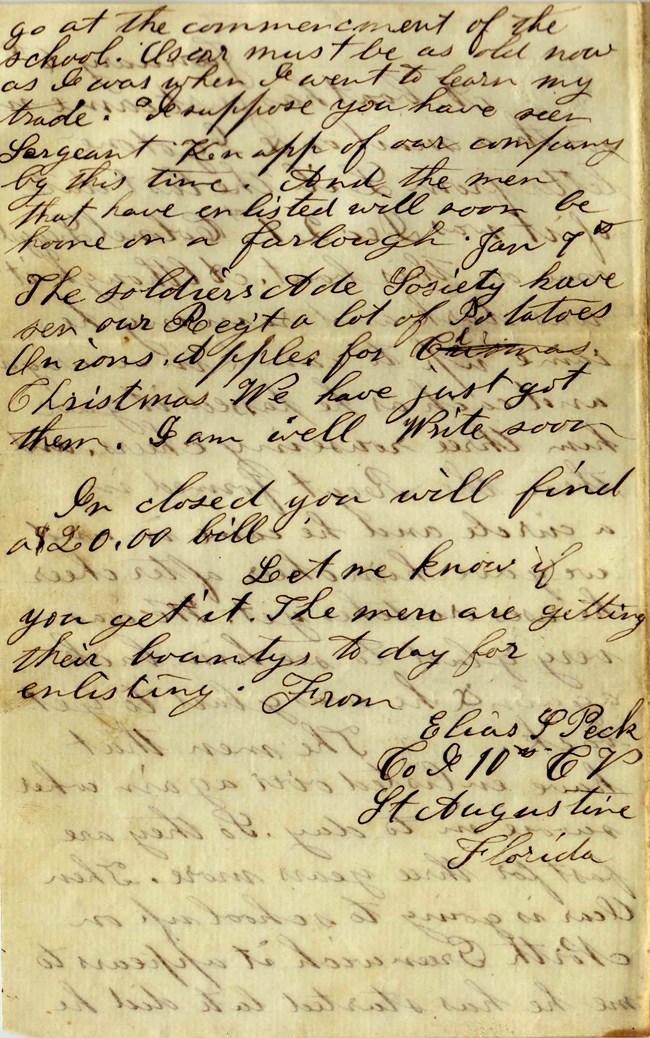 go at the commencment of the
school. Oscar must be as old now
as I was when I went to learn my
trade. I suppose you have seen
Sergeant Knapp of our company
by this time. And the men
that have enlisted will soon be
home on a furlough. Jan 7th
The soldiers Ade Society have
sen our Regt a lot of Potatoes
Onions. Apples for Chrismas.
Christmas We have just got
them. I am well Write soon
In closed you will find
a $20.00 bill
Let me know if
you get it. The men are getting
their bountys to day for
enlisting. From
Elias S Peck
Co I 10th C V
St Augustine
Florida